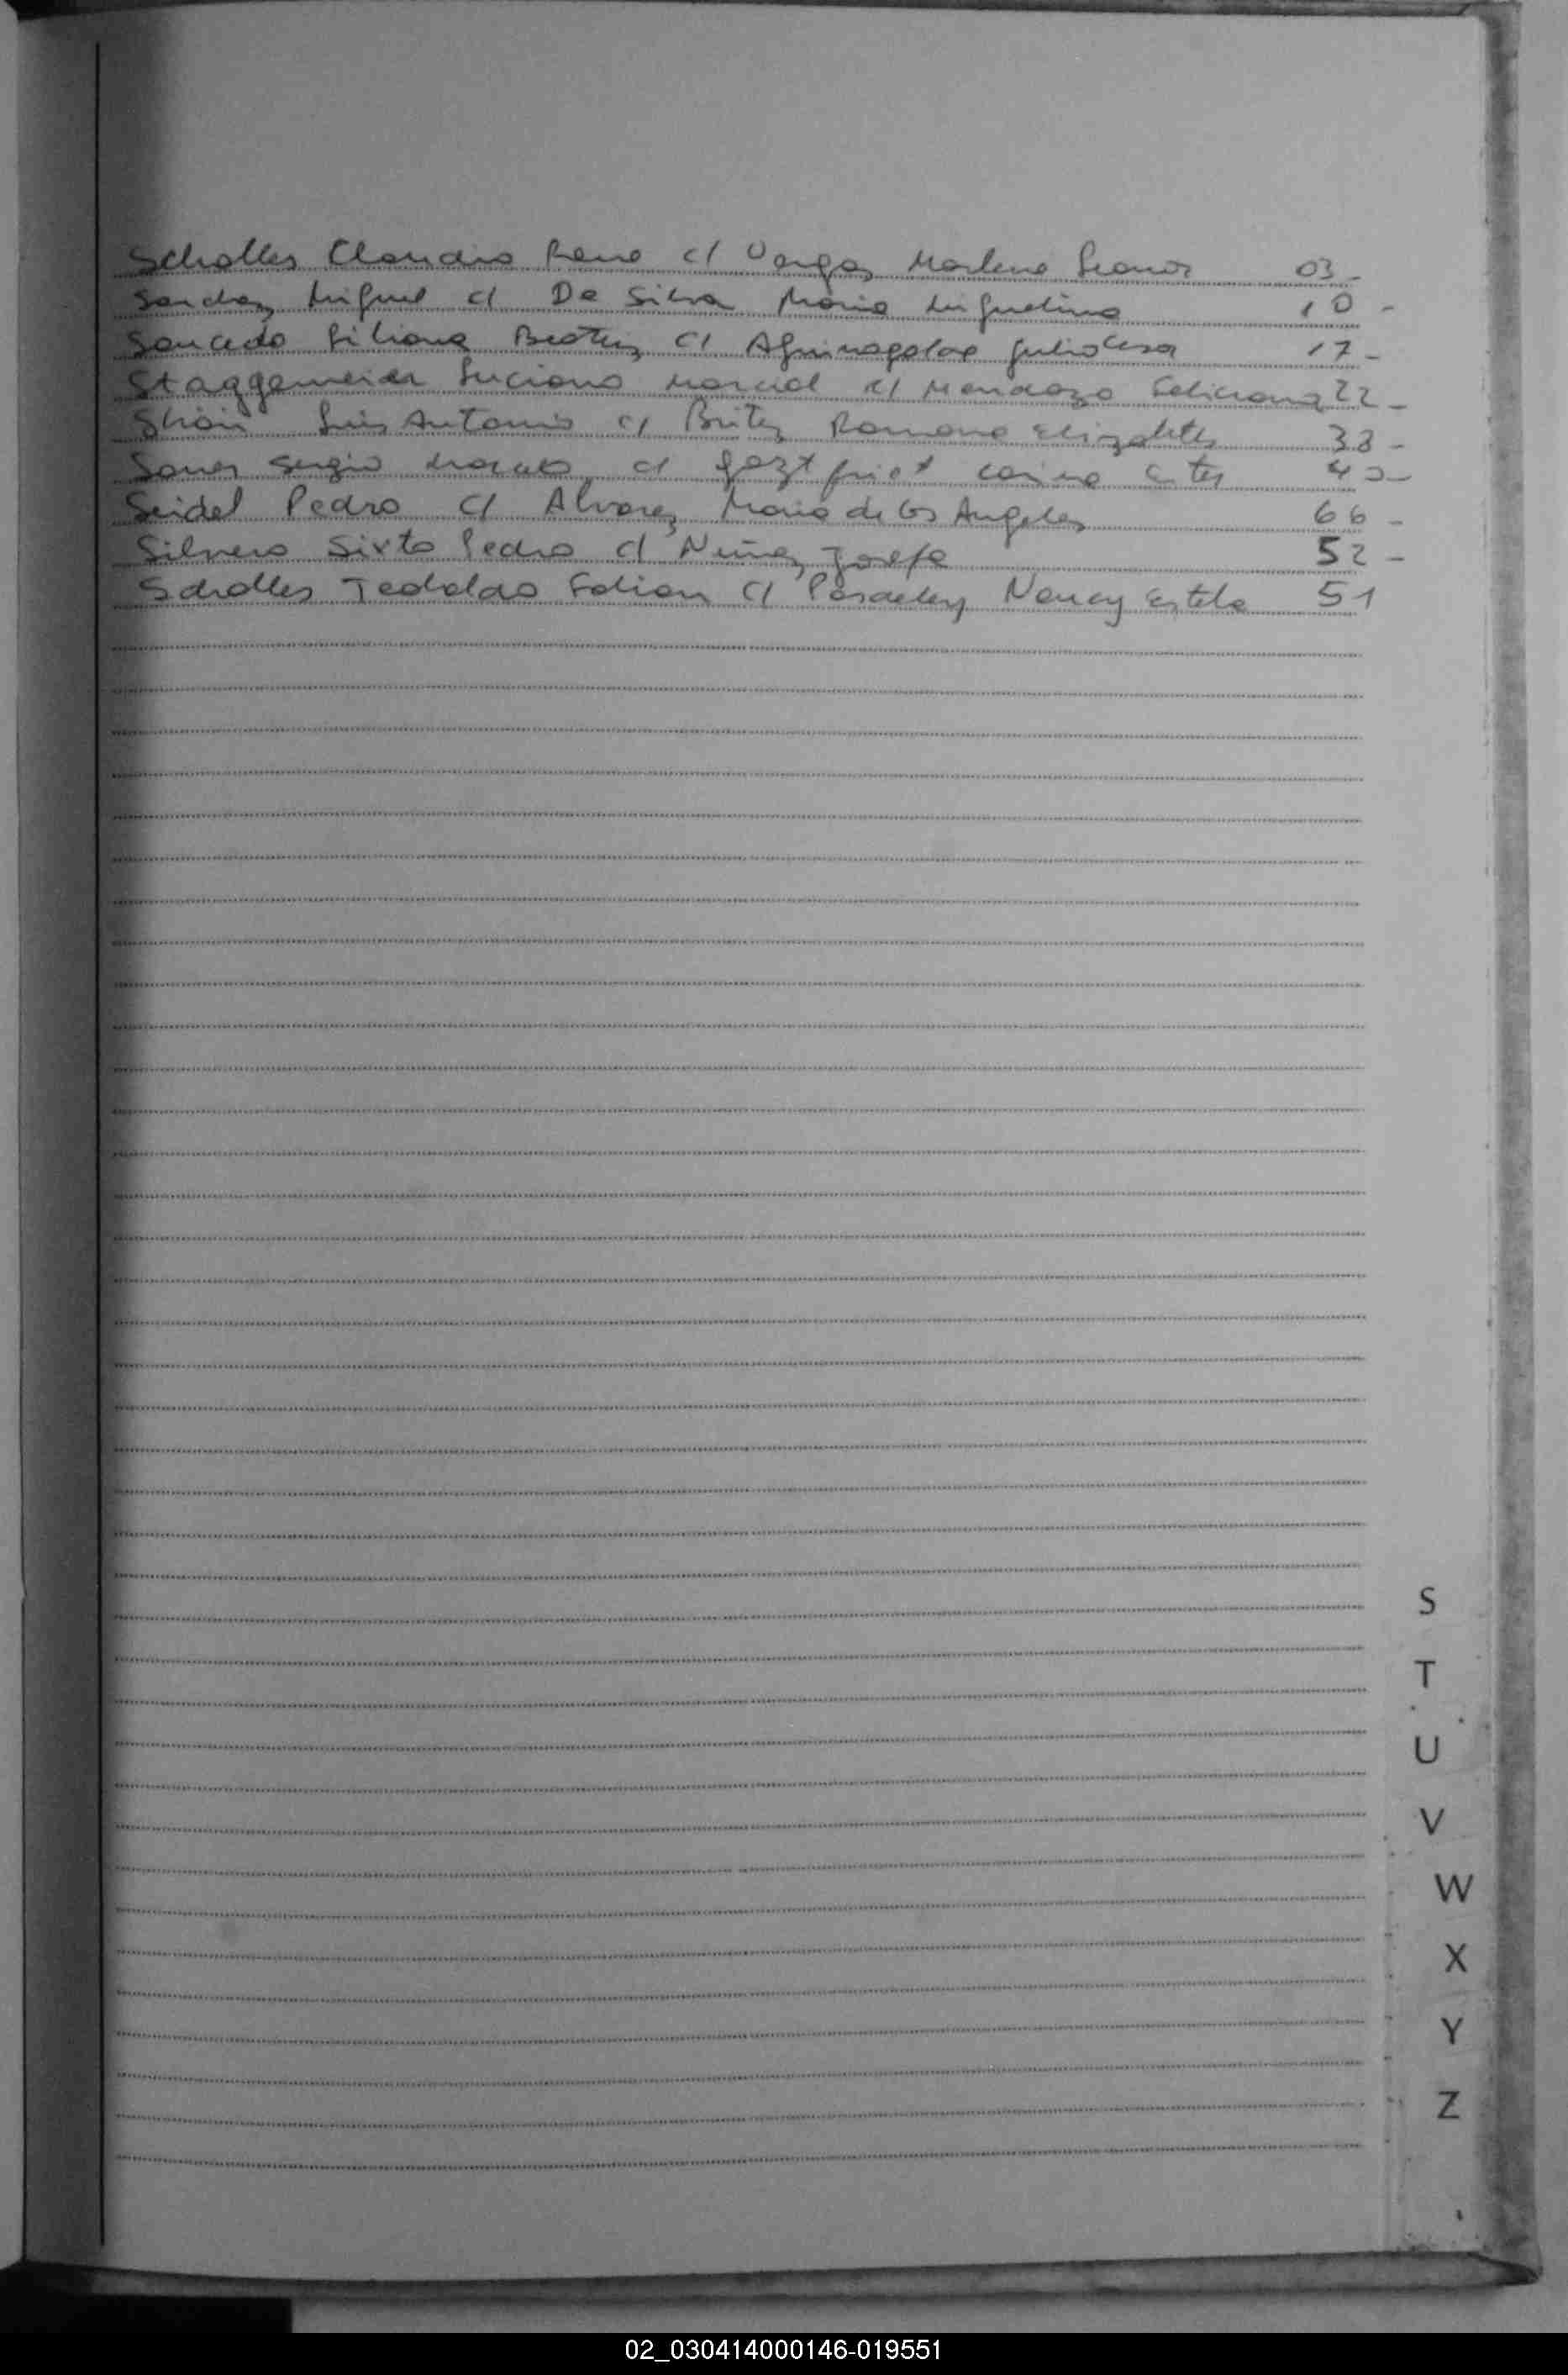 Scholles Claudio Rene c/ Vargas Marlene Leonor 03-
Sanchez Miguel c/ De Silva Maria Miguelina 10-
Saucedo Liliana Beatriz c/ Aguinagalde Julio Cesar 17-
Staggemeier Luciano Marcial c/ Mendoza Feliciana 22-
Luis Antonio c/ Britez Ramona Elizabeth 33-
Sergio c/ 40-
Seidel Pedro c/ Alvarez Maria de los Angeles 66-
Silvero Sixto Pedro c/ Nuñez Josefa 52-
Scholles Teobaldo Fabian c/ Nancy Estela 51
S
T
U
V
W
X
Y
Z
02_030414000146-019551